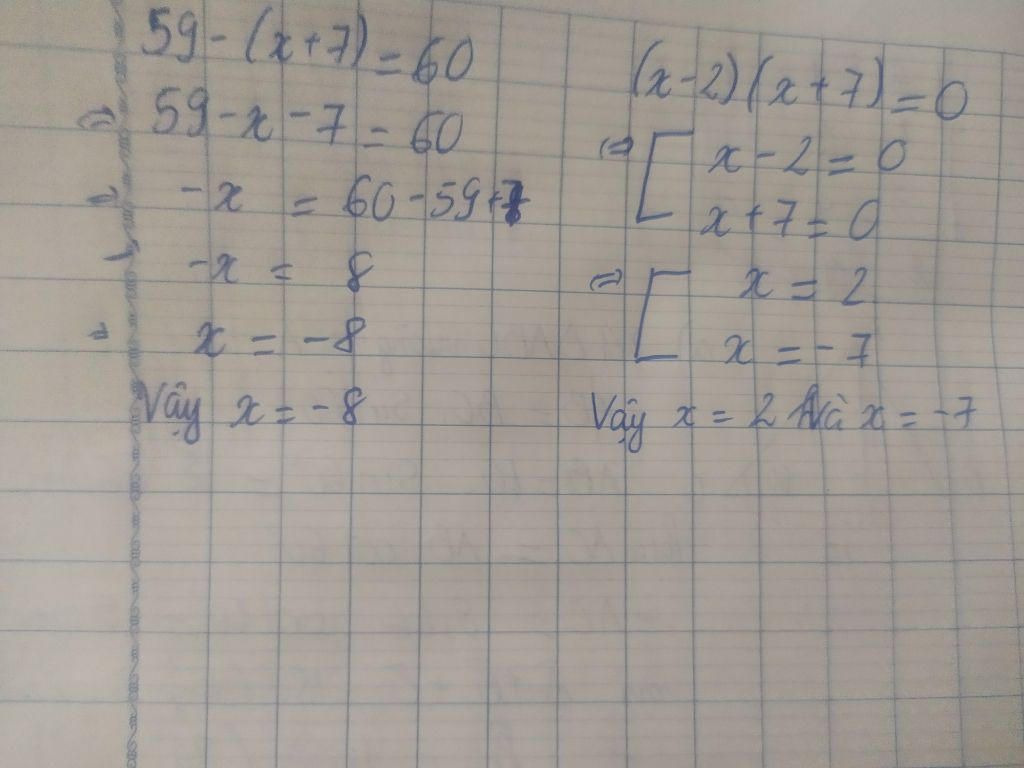 59 - (x+7) = 60
⇒ 59 - x - 7 = 60
⇒ -x = 60 - 59 + 7
-x = 8
⇒ x = -8
Vậy x = -8
(x-2)(x+7) = 0
⇒ [ x - 2 = 0
x + 7 = 0
⇒ [ x = 2
x = -7
Vậy x = 2 Và x = -7